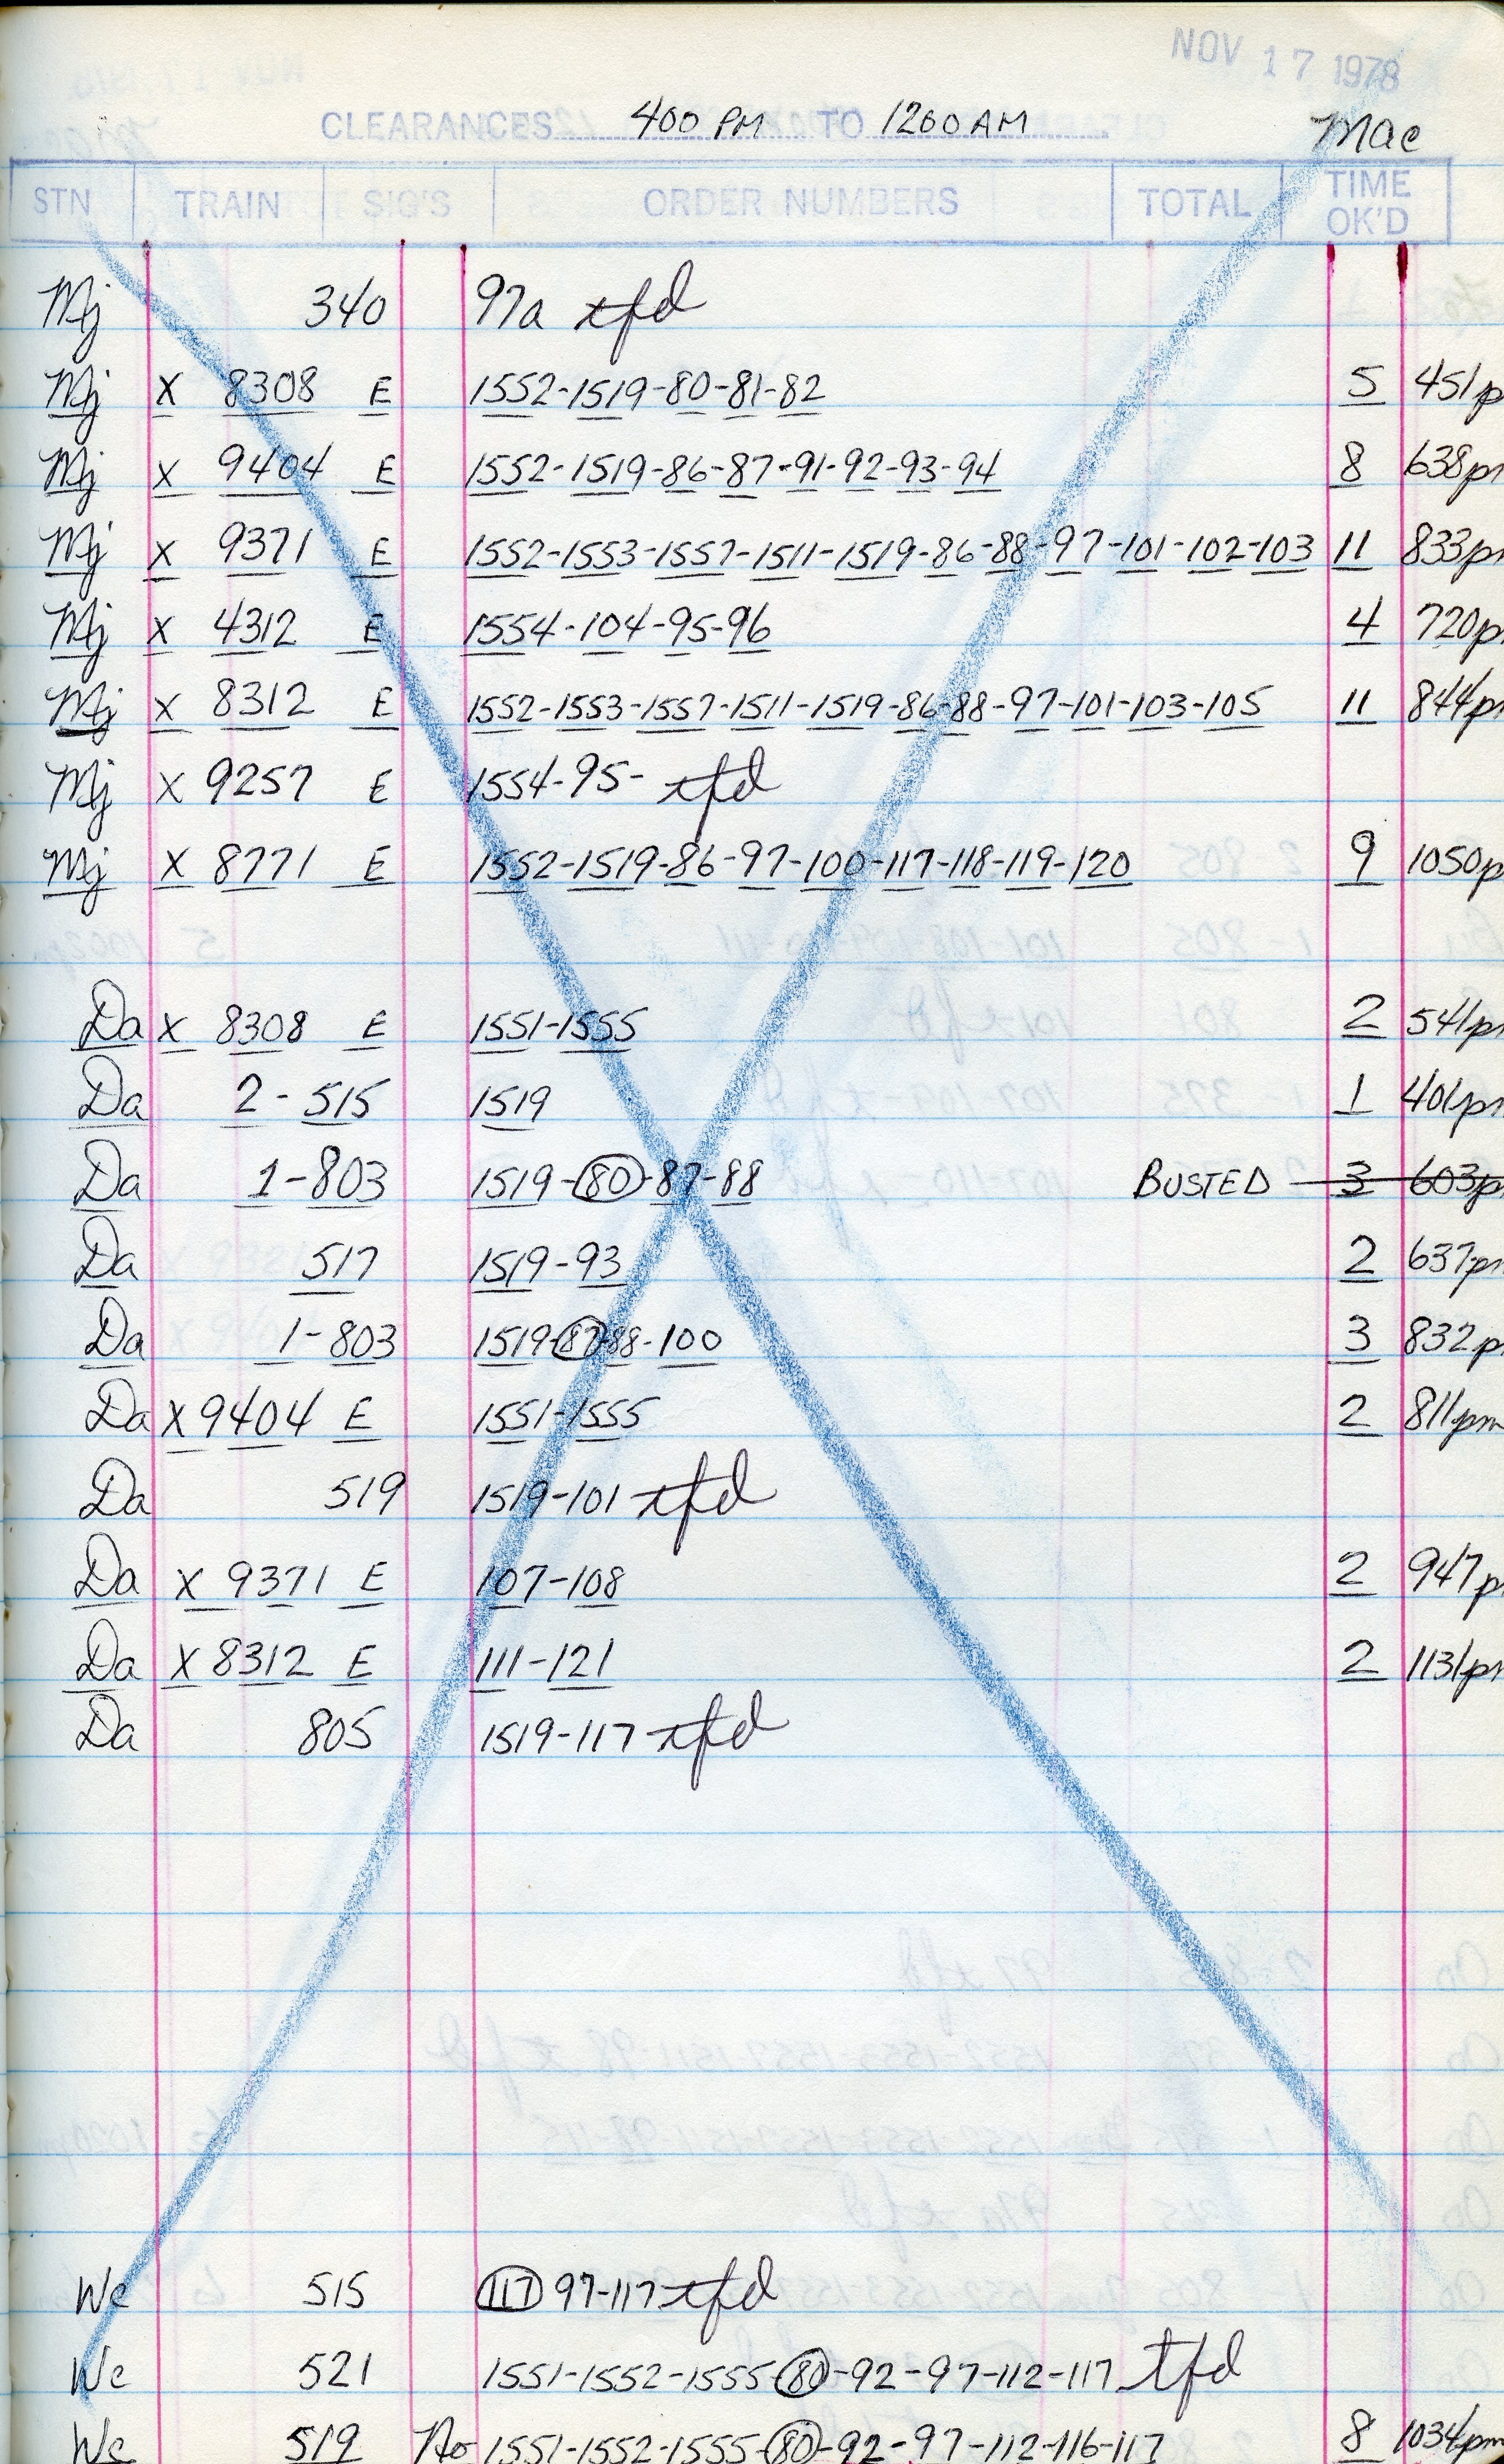 NOV 17 1978
CLEARANCES 400 PM TO 1200 AM Mac
STN TRAIN SIG'S ORDER NUMBERS TOTAL TIME OK'D
Mj 340 97a tfd
Mj X 8308 E 1552-1519-80-81-82 5 451p
Mj X 9404 E 1552-1519-86-87-91-92-93-94 8 638pm
Mj X 9371 E 1552-1553-1557-1511-1519-86-88-97-101-102-103 11 833pm
Mj X 4312 E 1554-104-95-96 4 720pm
Mj X 8312 E 1552-1553-1557-1511-1519-86-88-97-101-103-105 11 844pm
Mj X 9257 E 1554-95- tfd
Mj X 8771 E 1552-1519-86-97-100-117-118-119-120 9 1050p
Da X 8308 E 1551-1555 2 541pm
Da 2-515 1519 1 401pm
Da 1-803 1519-80-87-88 BUSTED 3 603p
Da 517 1519-93 2 637pm
Da 1-803 1519-87-88-100 3 832p
Da X 9404 E 1551-1555 2 811pm
Da 519 1519-101 tfd
Da X 9371 E 107-108 2 947p
Da X 8312 E 111-121 2 1131pm
Da 805 1519-117 tfd
We 515 117 97-117 tfd
We 521 1551-1552-1555-80-92-97-112-117 tfd
We 519 No 1551-1552-1555-80-92-97-112-116-117 8 1034pm